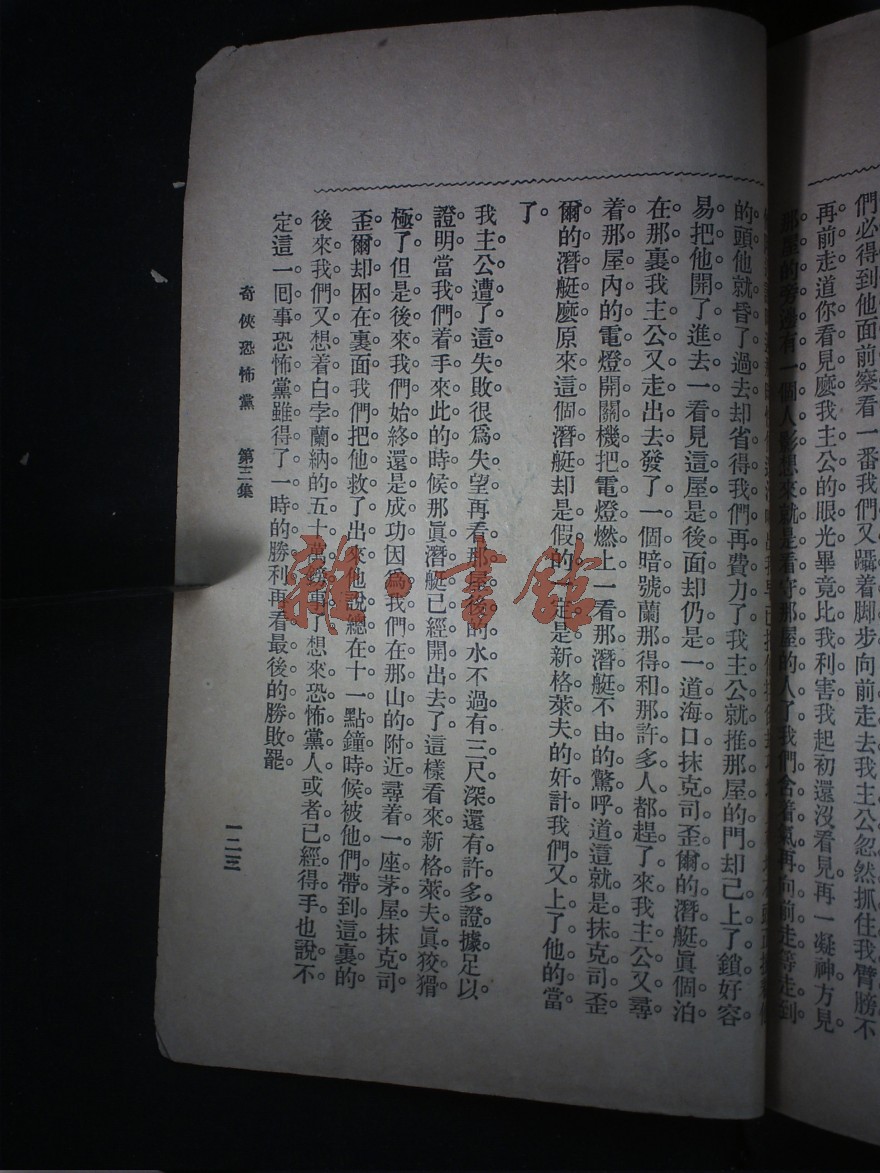 們必得到他面前察看一番我們又躡着脚步向前走去我主公忽然抓住我臂膀不
再前走道你看見麽我主公的眼光畢竟比我利害我起初還沒看見再一凝神方見
那屋的旁邊有一個人影想來就是看守那屋的人了我們含着氣再向前走等走到
的頭他就昏了過去却省得我們再費力了我主公就推那屋的門却已上了鎖好容
易把他開了進去一看見這屋是後面却仍是一道海口抹克司歪爾的潛艇眞個泊
在那裏我主公又走出去發了一個暗號蘭那得和那許多人都趕了來我主公又尋
着那屋內的電燈開關機把電燈燃上一看那潛艇不由的驚呼道這就是抹克司歪
爾的潛艇麽原來這個潛艇却是假的一定是新格萊夫的奸計我們又上了他的當
了
我主公遭了這失敗很爲失望再看那屋後的水不過有三尺深還有許多證據足以
證明當我們着手來此的時候那眞潛艇已經開出去了這樣看來新格萊夫眞狡猾
極了但是後來我們始終還是成功因爲我們在那山的附近尋着一座茅屋抹克司
歪爾却困在裏面我們把他救了出來他說總在十一點鐘時候被他們帶到這裏的
後來我們又想着白孛蘭納的五十萬鎊事了想來恐怖黨人或者已經得手也說不
定這一囘事恐怖黨雖得了一時的勝利再看最後的勝敗罷
奇俠恐怖黨 第三集
一二三
雜·書館